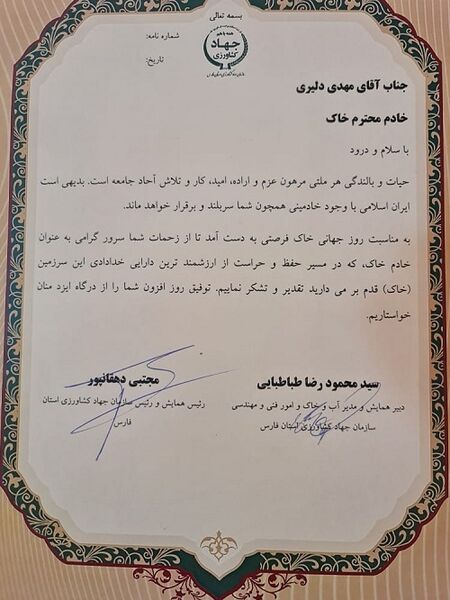 بسمه تعالی
همه با هم
جهاد
کشاورزی
شماره نامه:
تاریخ:
جناب آقای مهدی دلیری
خادم محترم خاک
با سلام و درود
حیات و بالندگی هر ملتی مرهون عزم و اراده، امید، کار و تلاش آحاد جامعه است. بدیهی است
ایران اسلامی با وجود خادمینی همچون شما سربلند و برقرار خواهد ماند.
به مناسبت روز جهانی خاک فرصتی به دست آمد تا از زحمات شما سرور گرامی به عنوان
خادم خاک، که در مسیر حفظ و حراست از ارزشمند ترین دارایی خدادادی این سرزمین
(خاک) قدم بر می دارید تقدیر و تشکر نماییم. توفیق روز افزون شما را از درگاه ایزد منان
خواستاریم.
سید محمود رضا طباطبایی
دبیر همایش و مدیر آب و خاک و امور فنی و مهندسی
سازمان جهاد کشاورزی استان فارس
مجتبی دهقانپور
رئیس همایش و رئیس سازمان جهاد کشاورزی استان
فارس